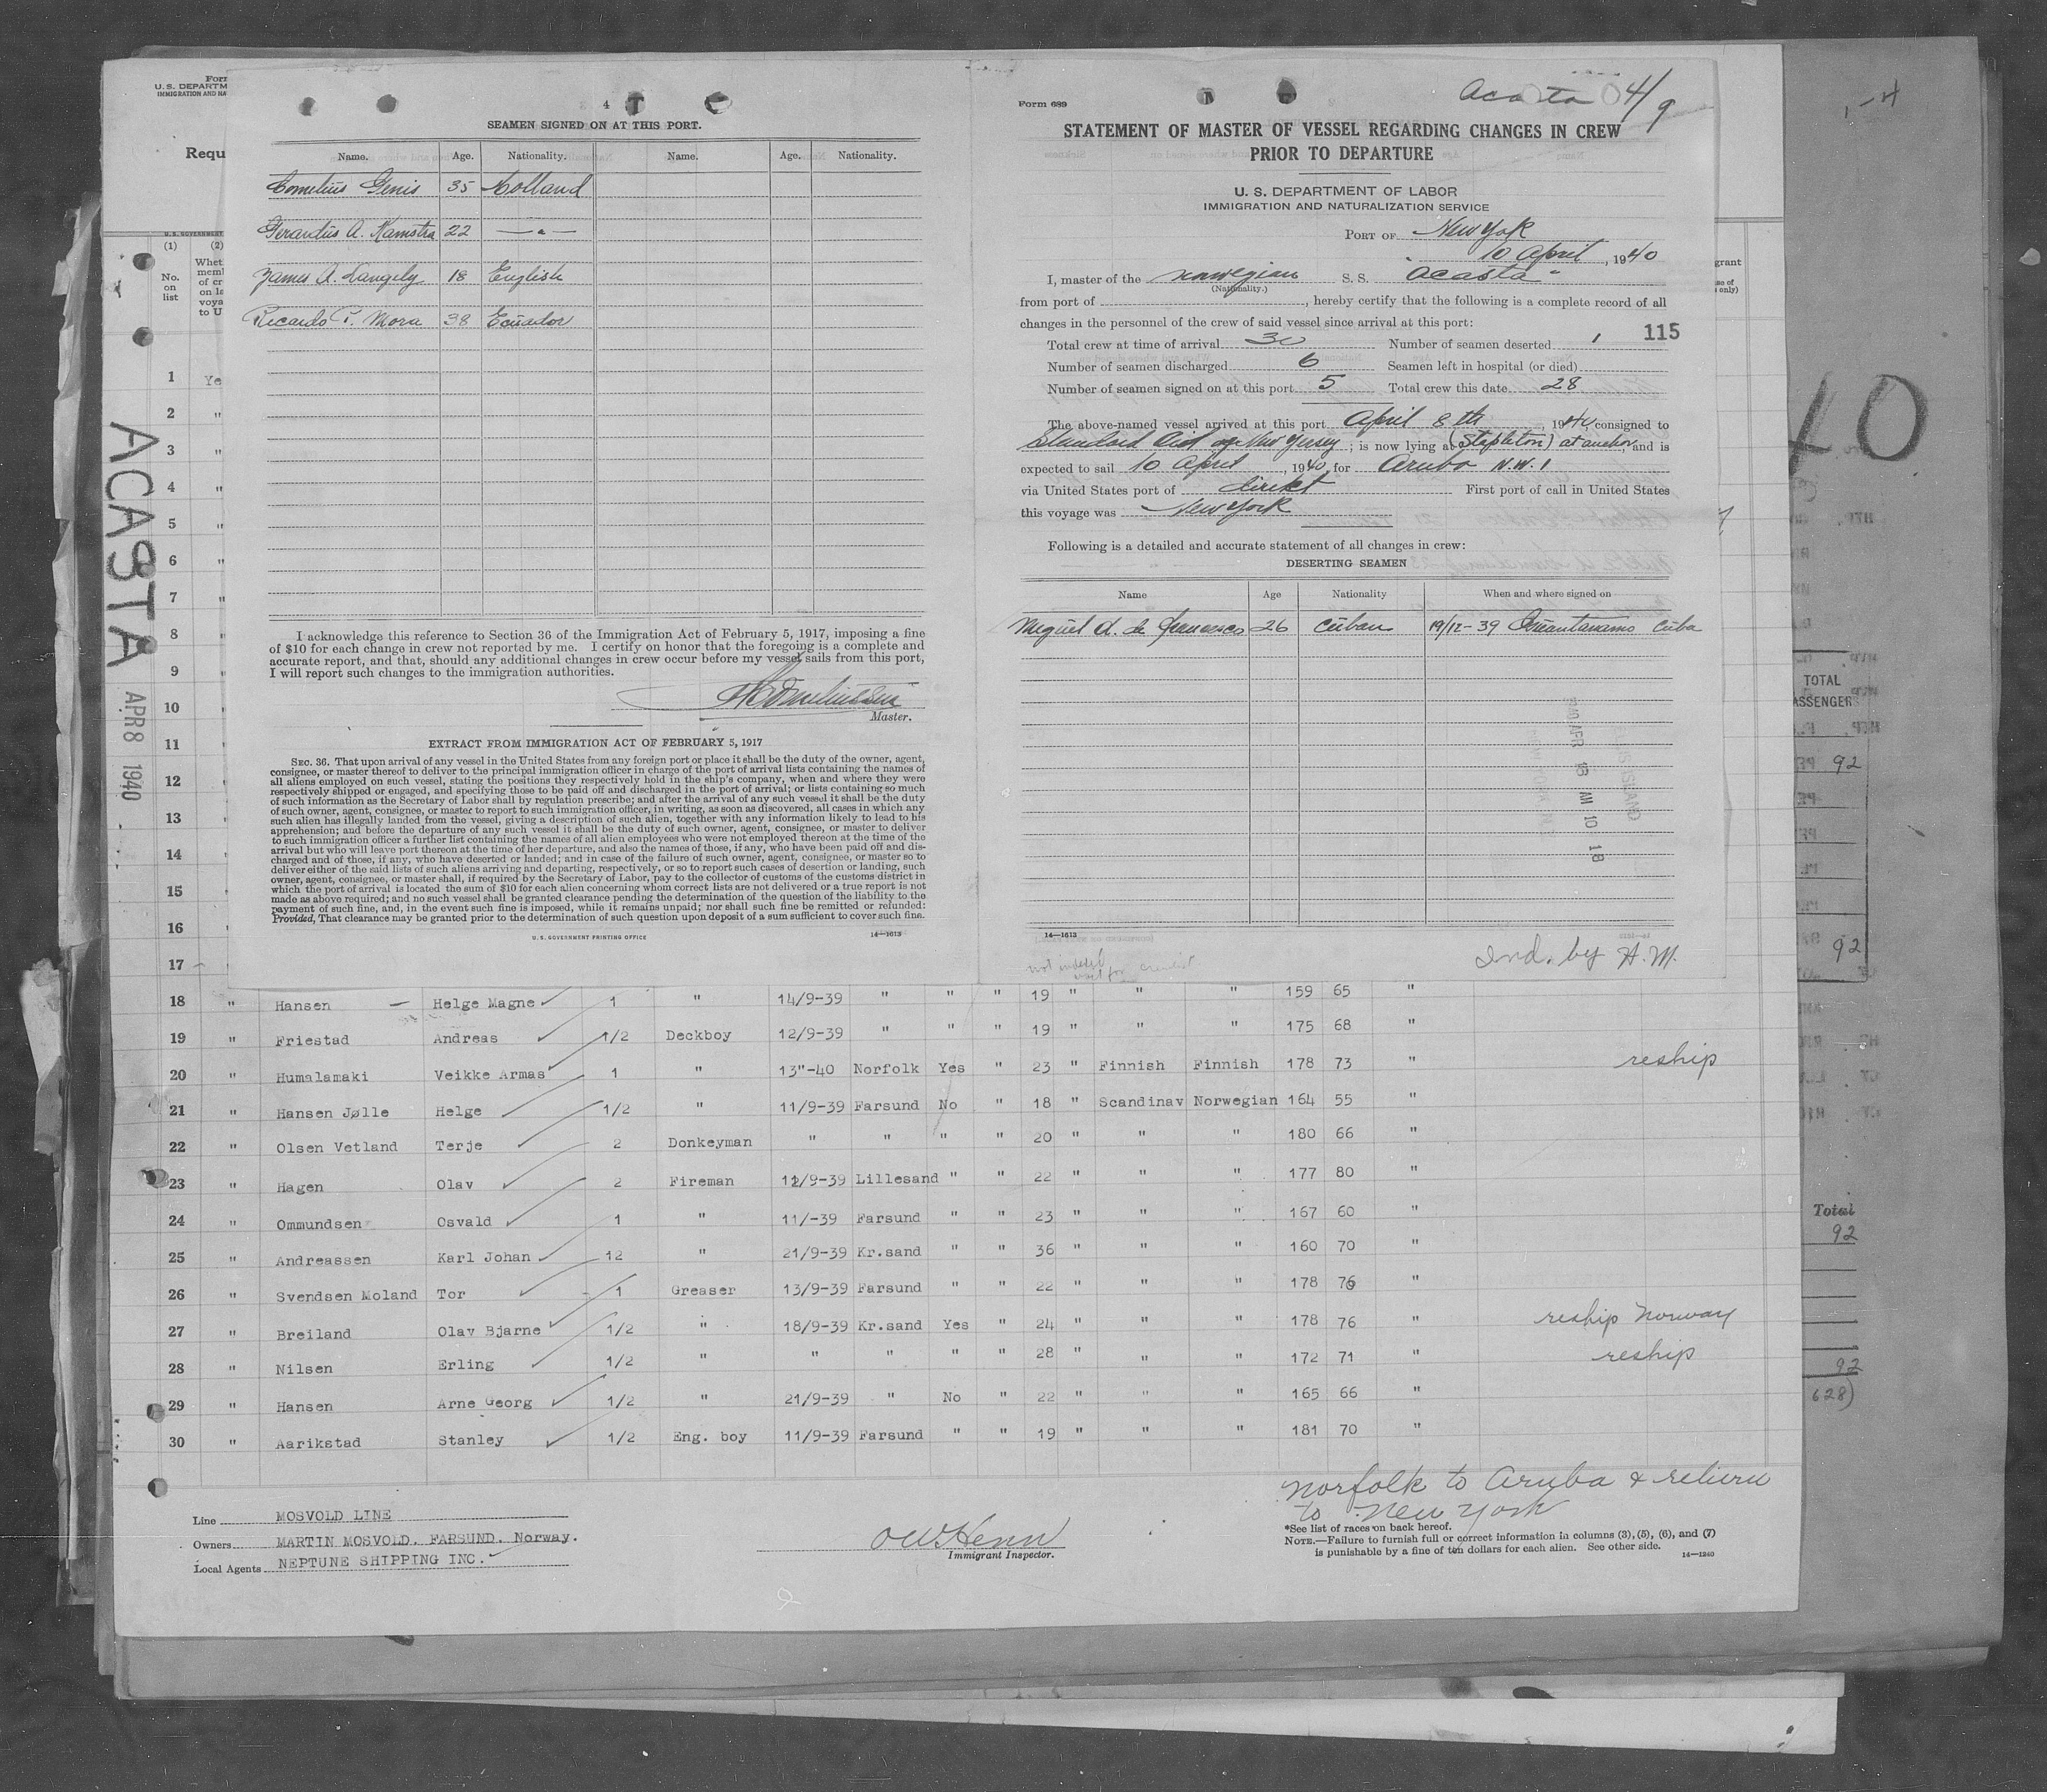 Form
U. S. DEPARTM
IMMIGRATION AND NA
Requ
4
SEAMEN SIGNED ON AT THIS PORT.
Name. Age. Nationality. Name. Age. Nationality.
Cornelius Genis 35 Holland
Gerardus A. Kamstra 22 —"—
James A. Langely 18 English
Ricardo P. Mora 38 Ecuador
I acknowledge this reference to Section 36 of the Immigration Act of February 5, 1917, imposing a fine
of $10 for each change in crew not reported by me. I certify on honor that the foregoing is a complete and
accurate report, and that, should any additional changes in crew occur before my vessel sails from this port,
I will report such changes to the immigration authorities.
Master.
EXTRACT FROM IMMIGRATION ACT OF FEBRUARY 5, 1917
SEC. 36. That upon arrival of any vessel in the United States from any foreign port or place it shall be the duty of the owner, agent,
consignee, or master thereof to deliver to the principal immigration officer in charge of the port of arrival lists containing the names of
all aliens employed on such vessel, stating the positions they respectively hold in the ship's company, when and where they were
respectively shipped or engaged, and specifying those to be paid off and discharged in the port of arrival; or lists containing so much
of such information as the Secretary of Labor shall by regulation prescribe; and after the arrival of any such vessel it shall be the duty
of such owner, agent, consignee, or master to report to such immigration officer, in writing, as soon as discovered, all cases in which any
such alien has illegally landed from the vessel, giving a description of such alien, together with any information likely to lead to his
apprehension; and before the departure of any such vessel it shall be the duty of such owner, agent, consignee, or master to deliver
to such immigration officer a further list containing the names of all alien employees who were not employed thereon at the time of the
arrival but who will leave port thereon at the time of her departure, and also the names of those, if any, who have been paid off and dis-
charged and of those, if any, who have deserted or landed; and in case of the failure of such owner, agent, consignee, or master so to
deliver either of the said lists of such aliens arriving and departing, respectively, or so to report such cases of desertion or landing, such
owner, agent, consignee, or master shall, if required by the Secretary of Labor, pay to the collector of customs of the customs district in
which the port of arrival is located the sum of $10 for each alien concerning whom correct lists are not delivered or a true report is not
made as above required; and no such vessel shall be granted clearance pending the determination of the question of the liability to the
payment of such fine, and, in the event such fine is imposed, while it remains unpaid; nor shall such fine be remitted or refunded:
Provided, That clearance may be granted prior to the determination of such question upon deposit of a sum sufficient to cover such fine.
U. S. GOVERNMENT PRINTING OFFICE 14—1613
Acasta 4/9
Form 689
STATEMENT OF MASTER OF VESSEL REGARDING CHANGES IN CREW
PRIOR TO DEPARTURE
U. S. DEPARTMENT OF LABOR
IMMIGRATION AND NATURALIZATION SERVICE
PORT OF New York
10 April, 1940
I, master of the norwegian S. S. "Acasta"
(Nationality.)
from port of , hereby certify that the following is a complete record of all
changes in the personnel of the crew of said vessel since arrival at this port:
115
Total crew at time of arrival 30 Number of seamen deserted 1
Number of seamen discharged 6 Seamen left in hospital (or died)
Number of seamen signed on at this port 5 Total crew this date 28
The above-named vessel arrived at this port April 8th, 1940, consigned to
Standard Oil of New Jersey; is now lying at (Stapleton) at anchor, and is
expected to sail 10 April, 1940, for Aruba N.W.I
via United States port of direkt First port of call in United States
this voyage was New York
Following is a detailed and accurate statement of all changes in crew:
DESERTING SEAMEN
Name Age Nationality When and where signed on
Miguel A. de Francesco 26 Cuban 19/12-39 Guantanamo Cuba
ELLIS ISLAND
1940 APR 13 AM 10 18
14—1613
Ind. by H.M.
ACASTA
APR 8 1940
(1) (2)
No. on list
Whet
memb
of cr
on la
voya
to U
1 Ye
2 "
3 "
4 "
5 "
6 "
7 "
8 "
9 "
10 "
11 "
12 "
13 "
14 "
15 "
16 "
17
18 " Hansen — Helge Magne 1 " 14/9-39 " " " 19 " " " 159 65 "
19 " Friestad Andreas 1/2 Deckboy 12/9-39 " " " 19 " " " 175 68 "
20 " Humalamaki Veikke Armas 1 " 13"-40 Norfolk Yes " 23 " Finnish Finnish 178 73 " reship
21 " Hansen Jølle Helge 1/2 " 11/9-39 Farsund No " 18 " Scandinav Norwegian 164 55 "
22 " Olsen Vetland Terje 2 Donkeyman " " " " 20 " " " 180 66 "
23 " Hagen Olav 2 Fireman 12/9-39 Lillesand " " 22 " " " 177 80 "
24 " Ommundsen Osvald 1 " 11/-39 Farsund " " 23 " " " 167 60 "
25 " Andreassen Karl Johan 12 " 21/9-39 Kr.sand " " 36 " " " 160 70 "
26 " Svendsen Moland Tor 1 Greaser 13/9-39 Farsund " " 22 " " " 178 76 "
27 " Breiland Olav Bjarne 1/2 " 18/9-39 Kr.sand Yes " 24 " " " 178 76 " reship Norway
28 " Nilsen Erling 1/2 " " " " " 28 " " " 172 71 " reship
29 " Hansen Arne Georg 1/2 " 21/9-39 " No " 22 " " " 165 66 "
30 " Aarikstad Stanley 1/2 Eng. boy 11/9-39 Farsund " " 19 " " " 181 70 "
Norfolk to Aruba & return
to New York
Line MOSVOLD LINE
Owners MARTIN MOSVOLD. FARSUND. Norway.
Local Agents NEPTUNE SHIPPING INC.
OWHenn
Immigrant Inspector.
*See list of races on back hereof.
NOTE.—Failure to furnish full or correct information in columns (3), (5), (6), and (7)
is punishable by a fine of ten dollars for each alien. See other side.
14—1240
40
TOTAL
ASSENGER
92
92
Total
92
92
628)